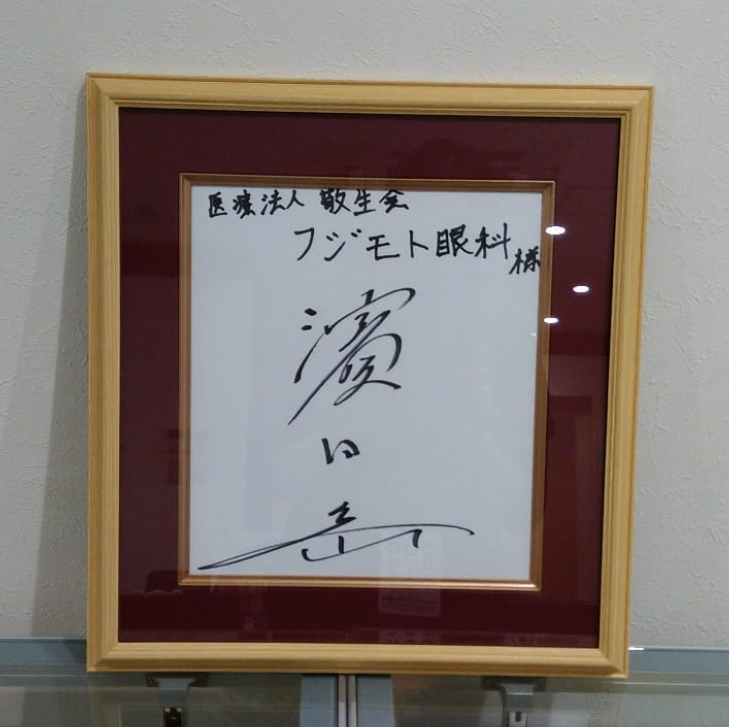 医療法人 敬生会
フジモト眼科 様
濱田
岳